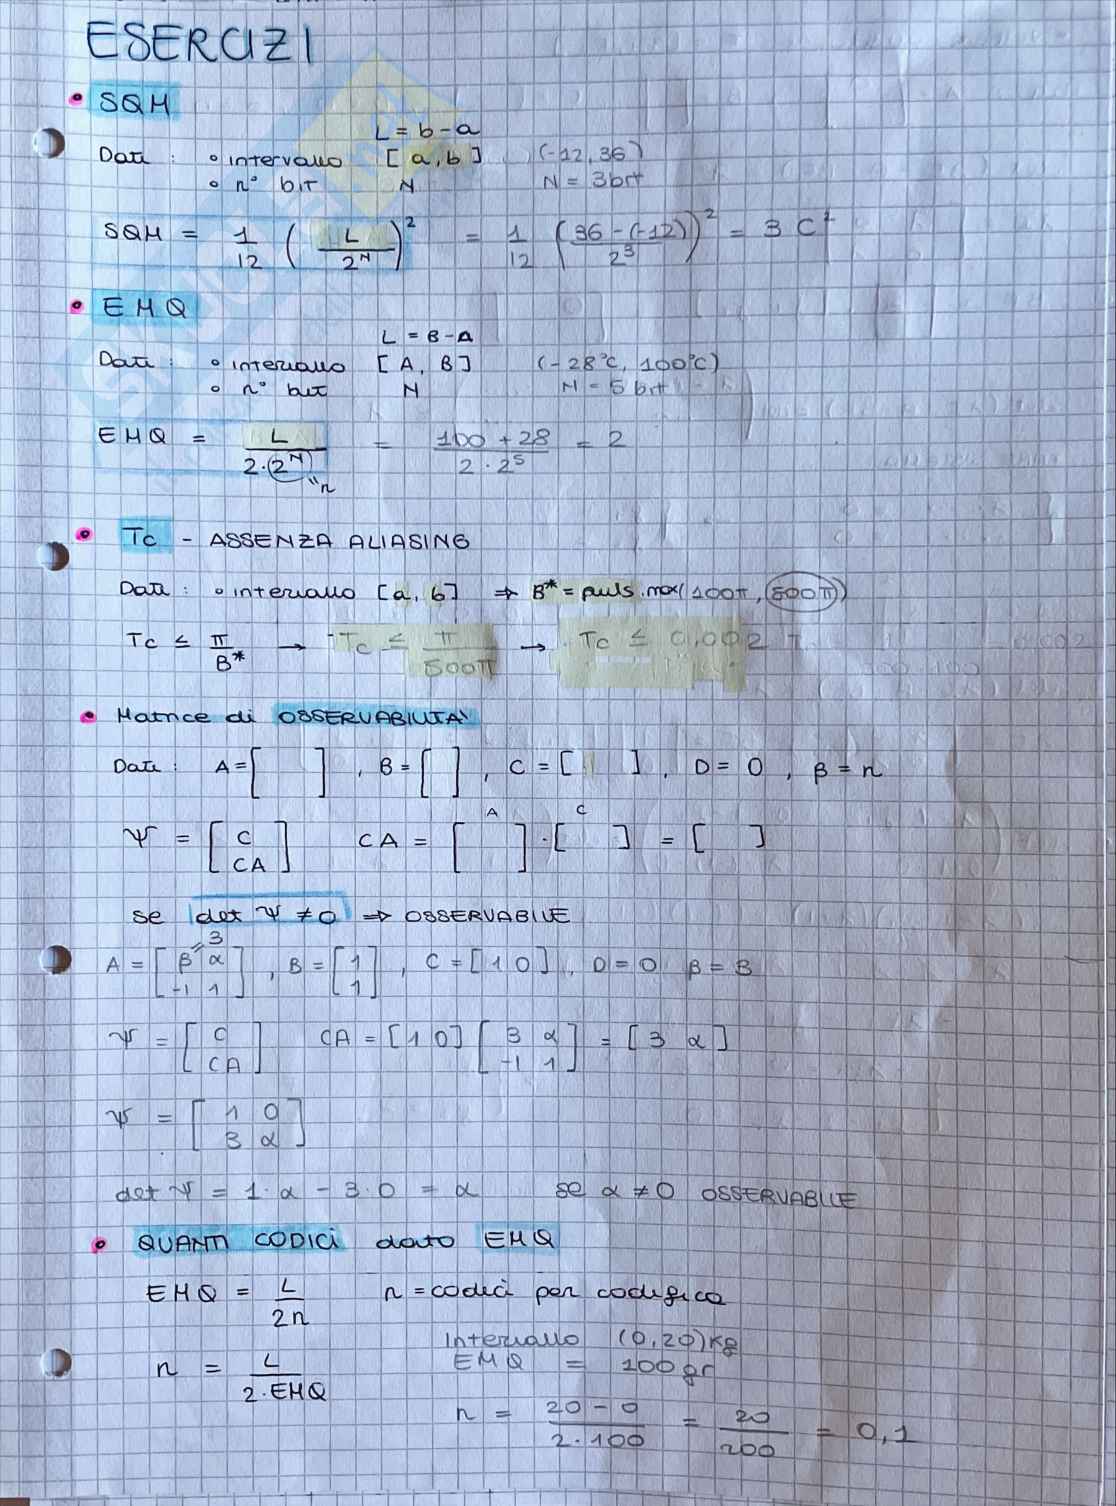 ESERCIZI
• SQM
L = b - a
Dati : ∘ intervallo [a, b] (-12, 36)
∘ n° bit N N = 3 bit
SQM = 1/12 (L/2^N)^2 = 1/12 ((36 - (-12))/2^3)^2 = 3 C^2
• EMQ
L = B - A
Dati : ∘ intervallo [A, B] (-28°C, 100°C)
∘ n° bit N N = 5 bit
EMQ = L/(2·(2^N)) = (100 + 28)/(2·2^5) = 2
"n
• Tc - ASSENZA ALIASING
Dati : ∘ intervallo [a, b] ⇒ B* = puls.max(100π, 500π)
Tc ≤ π/B* → Tc ≤ π/500π → Tc ≤ 0,002
• Matrice di OSSERVABILITA'
Dati : A = [ ] , B = [ ] , C = [ ] , D = 0 , β = n
A C
Ψ = [C; CA] CA = [ ] · [ ] = [ ]
se det Ψ ≠ 0 ⇒ OSSERVABILE
= 3
A = [β α; -1 1] , B = [1; 1] , C = [1 0] , D = 0 β = 3
Ψ = [C; CA] CA = [1 0] [3 α; -1 1] = [3 α]
Ψ = [1 0; 3 α]
det Ψ = 1·α - 3·0 = α se α ≠ 0 OSSERVABILE
• QUANTI CODICI dato EMQ
EMQ = L/2n n = codici per codifica
Intervallo (0,20) kg
EMQ = 100 gr
n = L/(2·EMQ)
n = (20 - 0)/(2·100) = 20/200 = 0,1